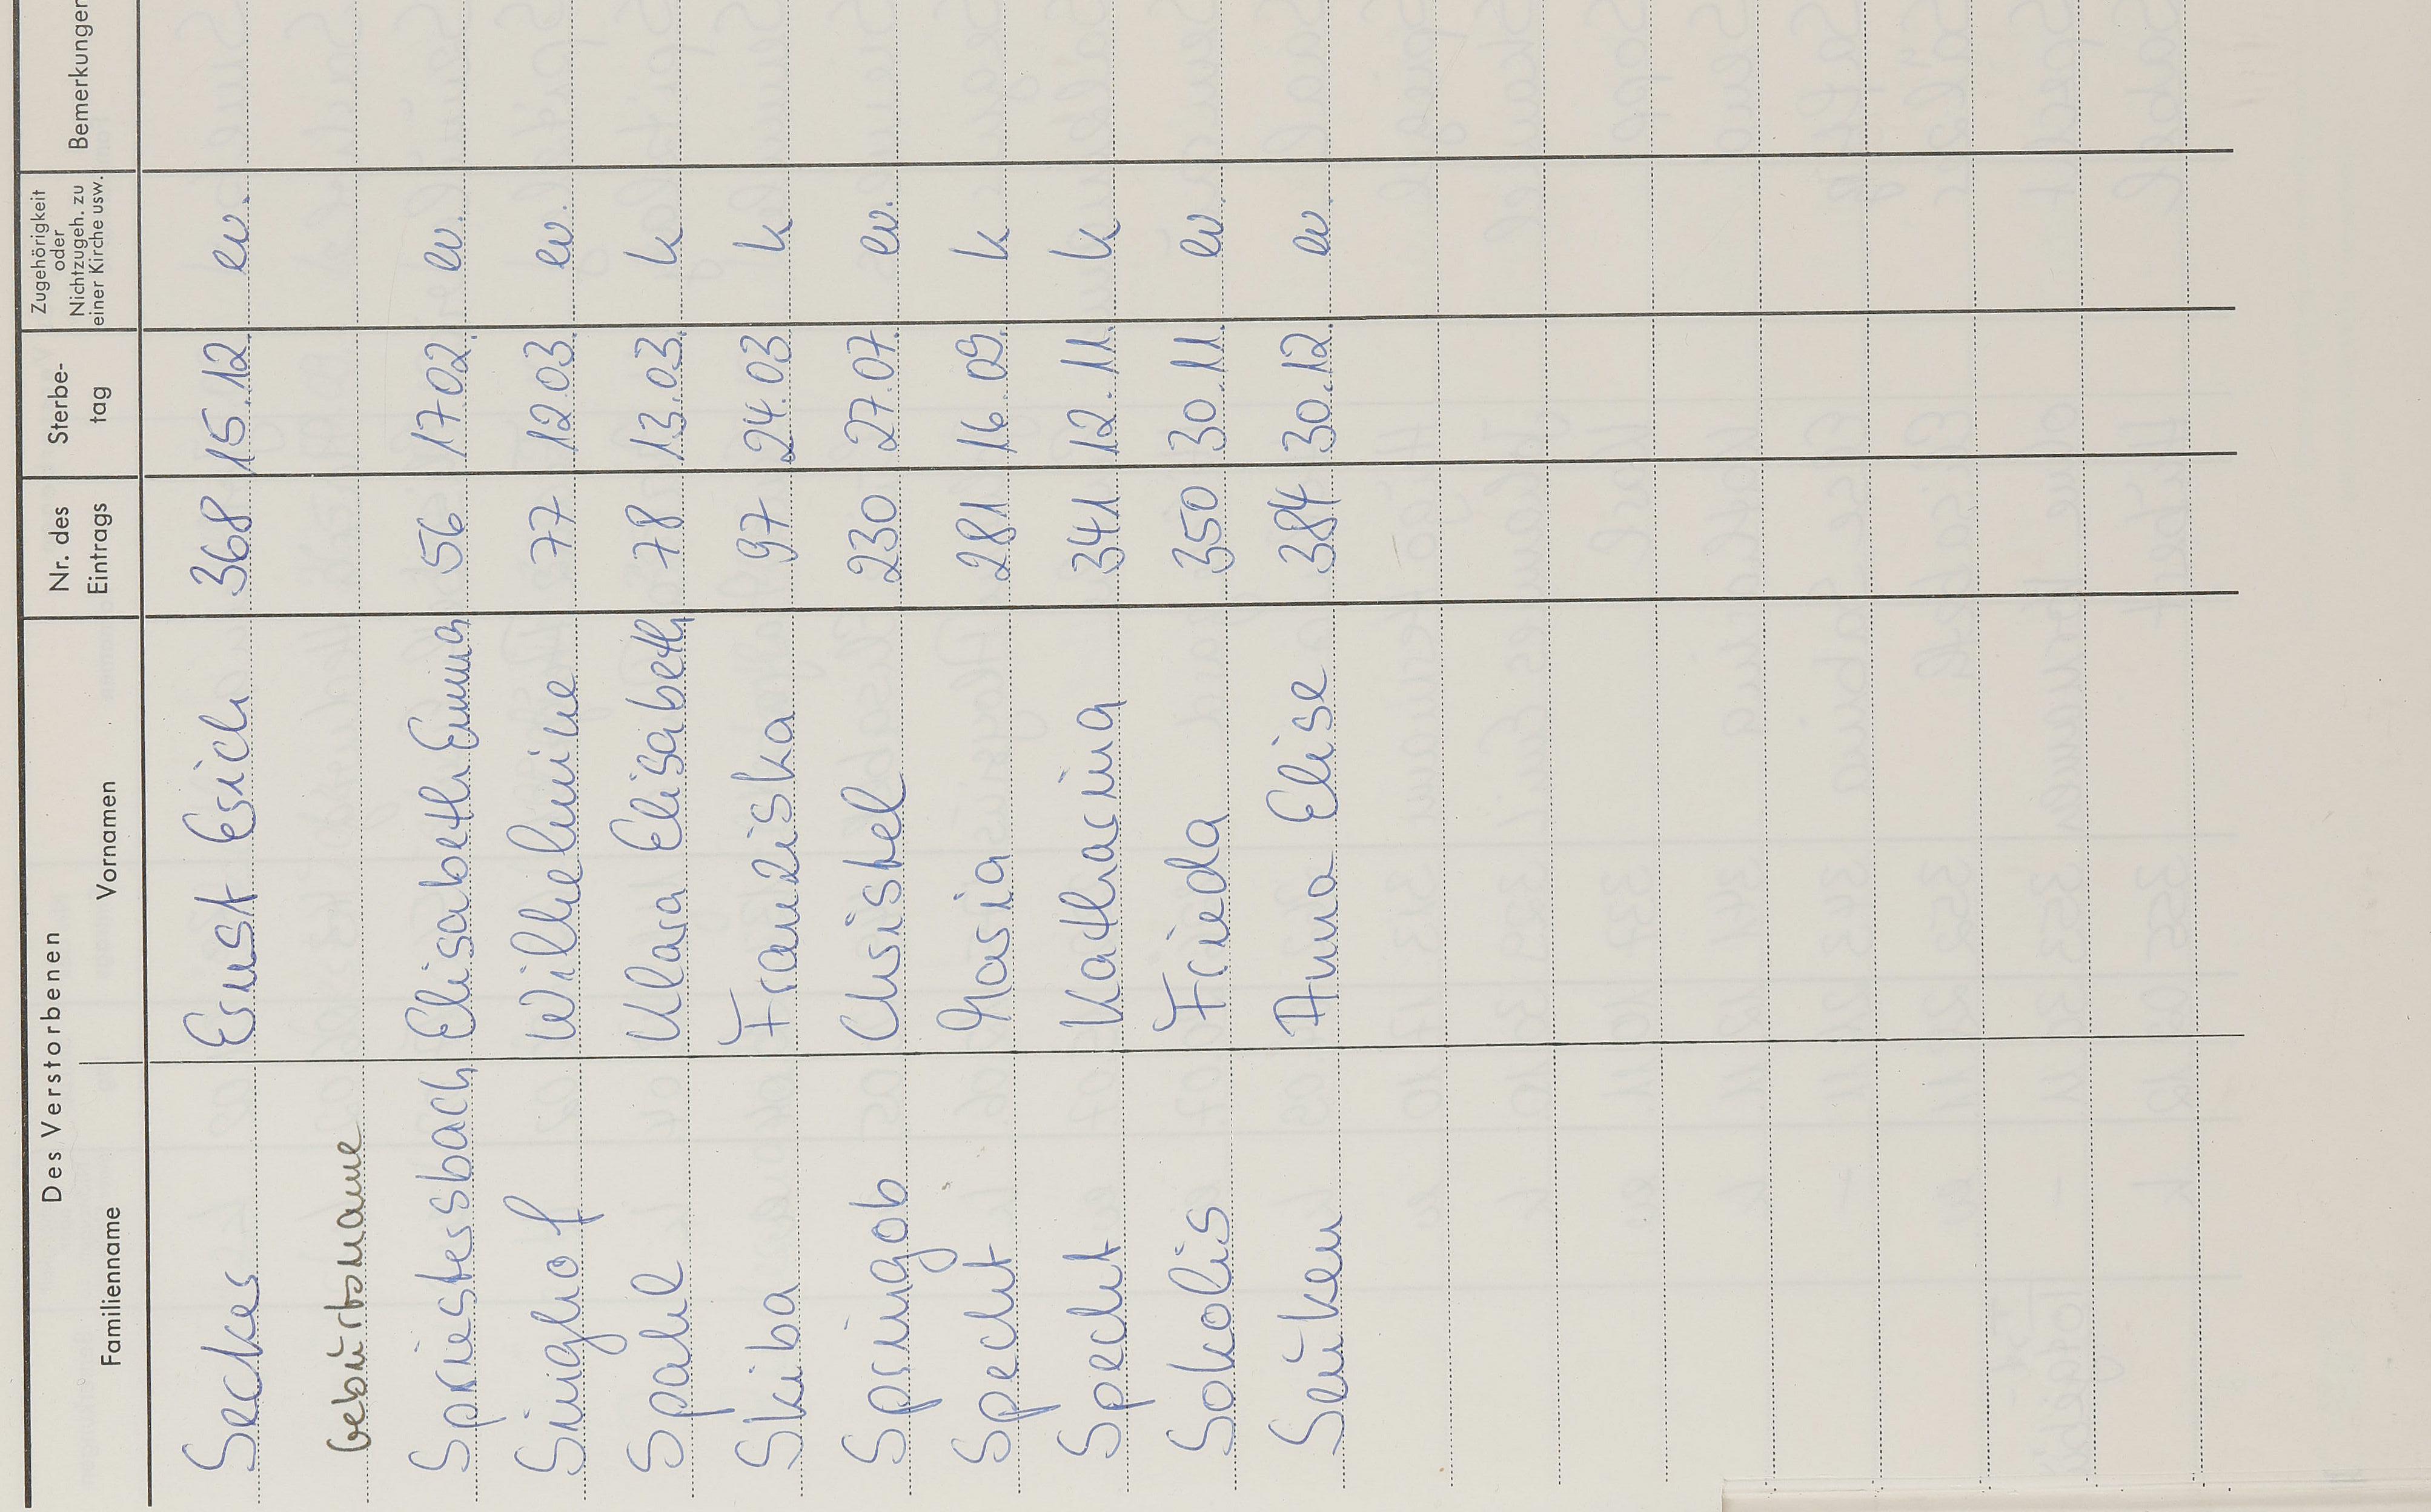 Des Verstorbenen
Familienname Vornamen Nr. des Eintrags Sterbe-tag Zugehörigkeit oder Nichtzugeh. zu einer Kirche usw. Bemerkungen
Seckes Ernst Erich 368 15.12. ev.
Geburtsname
Spriestersbach Elisabeth Emma 56 17.02. ev.
Singhof Wilhelmine 77 12.03. ev.
Spahl Klara Elisabeth 78 13.03. k
Skiba Franziska 97 24.03. k
Springob Christel 230 27.07. ev.
Specht Maria 281 16.09. k
Specht Katharina 341 12.11. k
Sokolis Frieda 350 30.11. ev.
Seuken Anna Elise 384 30.12. ev.